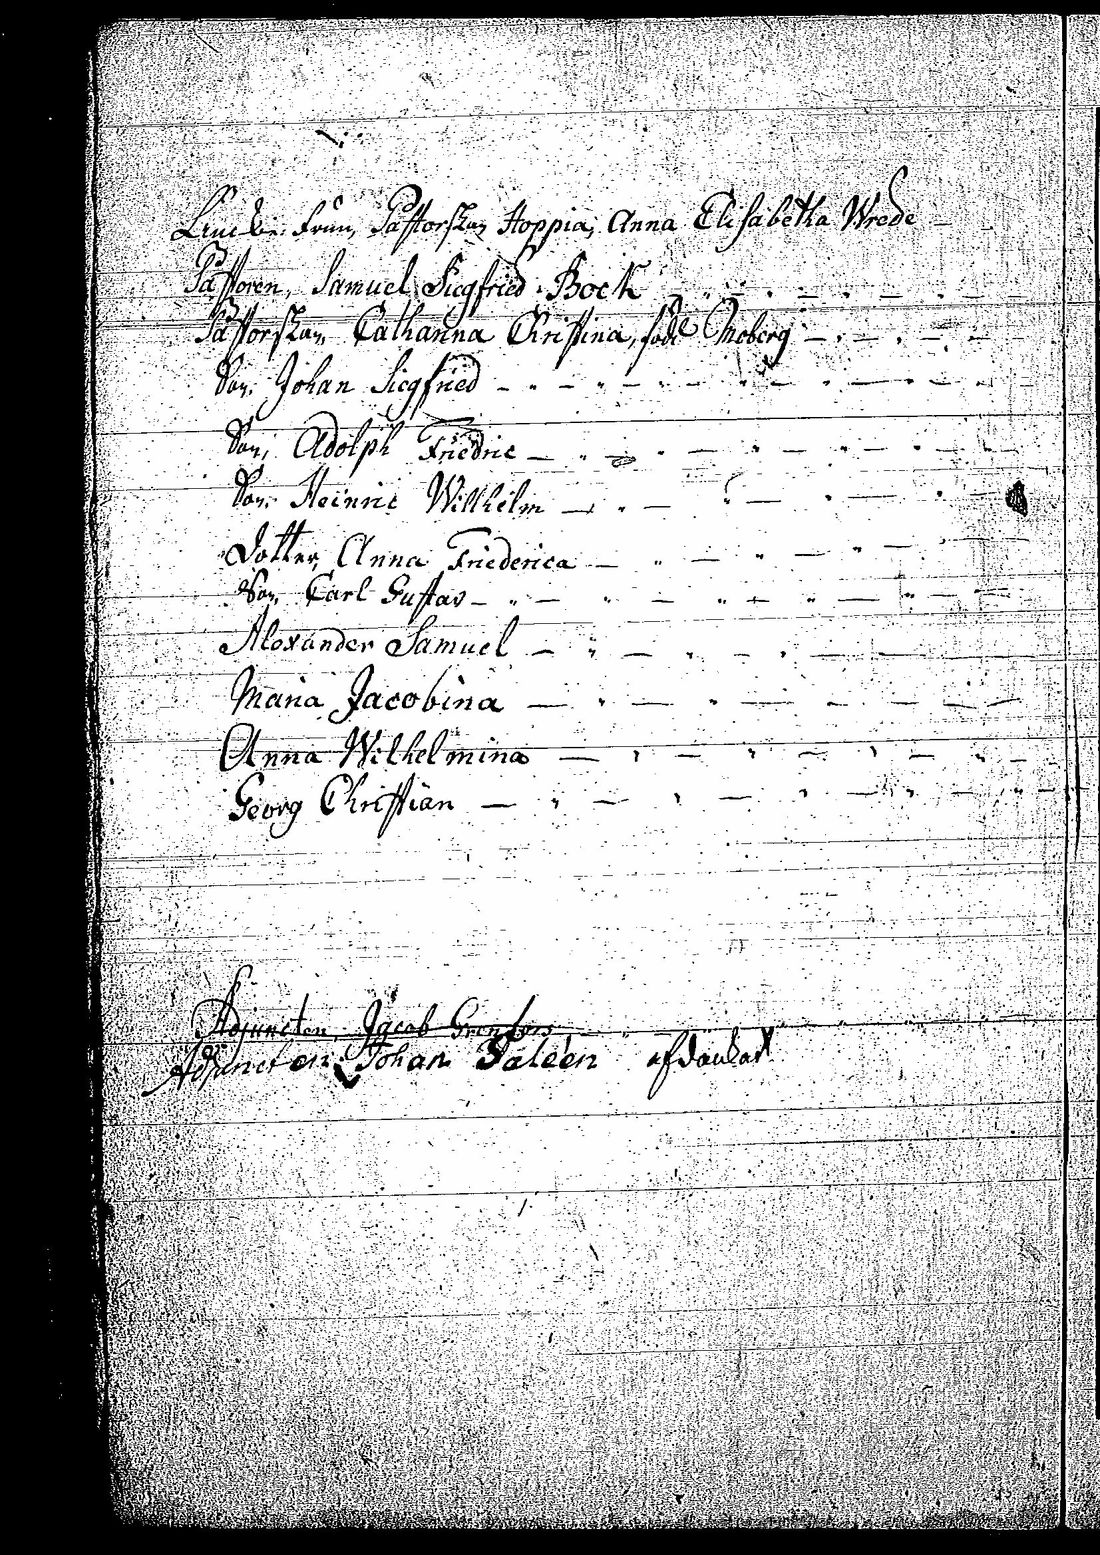 Enckie Frun, Pastorskan Hoppia, Anna Elisabetha Wrede
Pastoren, Samuel Siegfried Bock
Pastorskan Catharina Christina, född Moberg
Son, Johan Siegfried
Son, Adolph Friedric
Son, Heinric Wilhelm
Dotter, Anna Friederica
Son, Carl Gustav
Alexander Samuel
Maria Jacobina
Anna Wilhelmina
Georg Christian
Adjuncten, Jacob
Adjuncten Johan Saleen afdankad